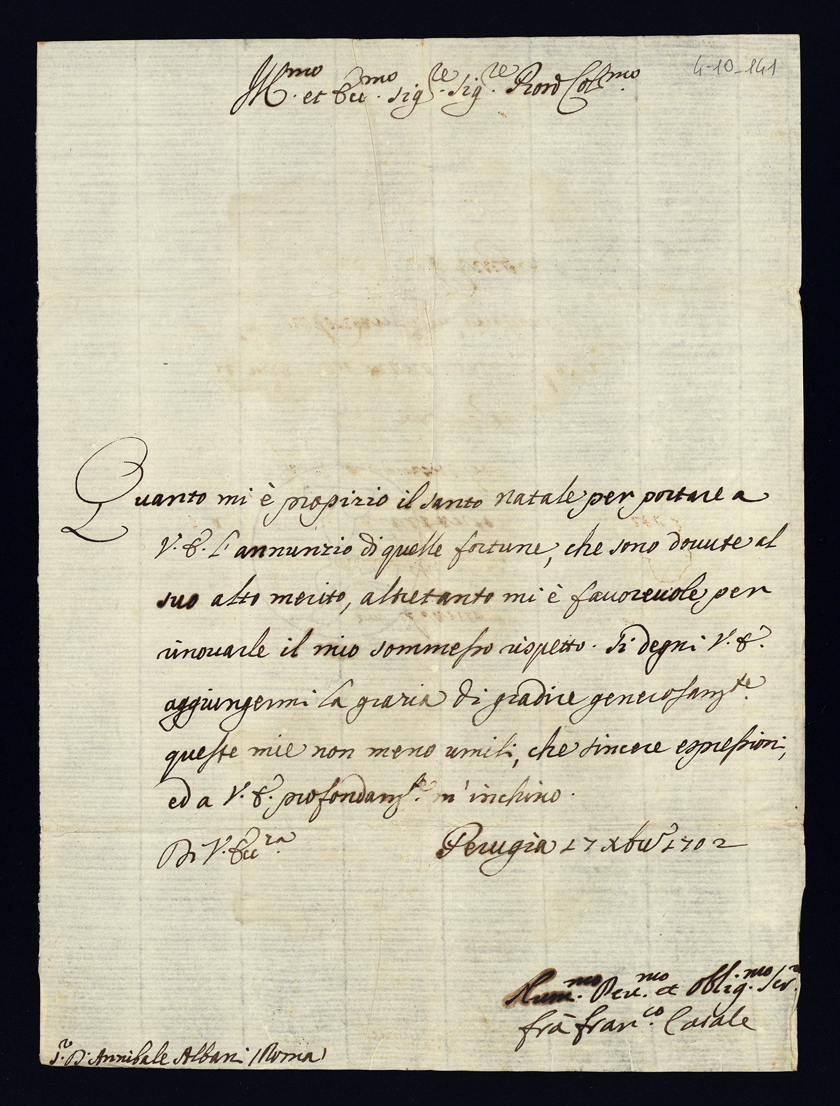 Ill.mo et Ecc.mo Sig.re Sig.re Pron Col.mo
4-10-141
Quanto mi è propizio il santo natale per portare a
V. E. l'annunzio di quelle fortune, che sono douute al
suo alto merito, altretanto mi è fauoreuole per
rinouarle il mio sommesso rispetto. Si degni V. E.
aggiungermi la grazia di gradire generosam.te
queste mie non meno umili, che sincere espressioni,
ed a V. E. profondam.te m'inchino.
Di V. Ecc.za
Perugia 17 Xbre 1702
Hum.mo Deu.mo et Oblig.mo Ser.re
frà Fran.co Casale
S.r D. Annibale Albani (Roma)